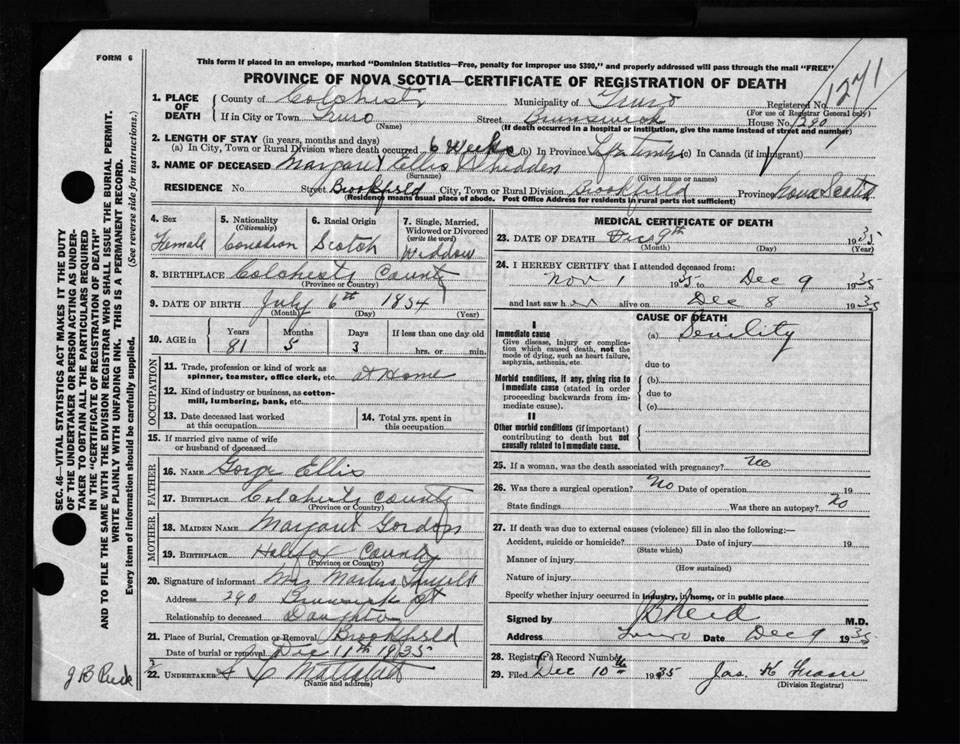 FORM 6
This form if placed in an envelope, marked "Dominion Statistics—Free, penalty for improper use $300," and properly addressed will pass through the mail "FREE"
PROVINCE OF NOVA SCOTIA—CERTIFICATE OF REGISTRATION OF DEATH
1271
1. PLACE OF DEATH
County of Colchester Municipality of Truro Registered No.
(For use of Registrar General only)
If in City or Town Truro Street Brunswick House No. 290
(Name) (If death occurred in a hospital or institution, give the name instead of street and number)
2. LENGTH OF STAY (in years, months and days)
(a) In City, Town or Rural Division where death occurred 6 Weeks (b) In Province Lifetime (c) In Canada (if immigrant)
3. NAME OF DECEASED Margaret Ellis Whidden
(Surname) (Given name or names)
RESIDENCE No. Street Brookfield City, Town or Rural Division Brookfield Province Nova Scotia
(Residence means usual place of abode. Post Office Address for residents in rural parts not sufficient)
4. Sex
Female
5. Nationality
(Citizenship)
Canadian
6. Racial Origin
Scotch
7. Single, Married, Widowed or Divorced
(write the word)
Widdow
8. BIRTHPLACE Colchester County
(Province or Country)
9. DATE OF BIRTH July 6th 1854
(Month) (Day) (Year)
10. AGE in
Years Months Days If less than one day old
81 5 3 hrs. or min.
OCCUPATION
11. Trade, profession or kind of work as spinner, teamster, office clerk, etc. at Home
12. Kind of industry or business, as cotton-mill, lumbering, bank, etc.
13. Date deceased last worked at this occupation
14. Total yrs. spent in this occupation
15. If married give name of wife or husband of deceased
FATHER
16. NAME George Ellis
17. BIRTHPLACE Colchester County
(Province or Country)
MOTHER
18. MAIDEN NAME Margaret Gordon
19. BIRTHPLACE Halifax County
(Province or Country)
20. Signature of informant Mrs
Address 290 Brunswick St
Relationship to deceased Daughter
21. Place of Burial, Cremation or Removal Brookfield
Date of burial or removal Dec 11th 1935
22. UNDERTAKER
(Name and address)
MEDICAL CERTIFICATE OF DEATH
23. DATE OF DEATH Dec 9th 1935
(Month) (Day) (Year)
24. I HEREBY CERTIFY that I attended deceased from:
Nov 1 1935 to Dec 9 1935
and last saw h er alive on Dec 8 1935
CAUSE OF DEATH
I
Immediate cause
Give disease, injury or complication which caused death, not the mode of dying, such as heart failure, asphyxia, asthenia, etc.
(a) Senility
due to
Morbid conditions, if any, giving rise to immediate cause (stated in order proceeding backwards from immediate cause).
(b)
due to
(c)
II
Other morbid conditions (if important) contributing to death but not causally related to immediate cause.
25. If a woman, was the death associated with pregnancy? No
26. Was there a surgical operation? No Date of operation 19
State findings Was there an autopsy? No
27. If death was due to external causes (violence) fill in also the following:—
Accident, suicide or homicide? Date of injury 19
(State which)
Manner of injury
(How sustained)
Nature of injury
Specify whether injury occurred in industry, in home, or in public place
Signed by M.D.
Address Truro Date Dec 9 1935
28. Registrar's Record Number
29. Filed Dec 10th 1935 Jas. H
(Division Registrar)
SEC. 46—VITAL STATISTICS ACT MAKES IT THE DUTY
OF THE UNDERTAKER OR PERSON ACTING AS UNDERTAKER TO OBTAIN ALL THE PARTICULARS REQUIRED
IN THE "CERTIFICATE OF REGISTRATION OF DEATH"
AND TO FILE THE SAME WITH THE DIVISION REGISTRAR WHO SHALL ISSUE THE BURIAL PERMIT.
WRITE PLAINLY WITH UNFADING INK. THIS IS A PERMANENT RECORD.
Every item of information should be carefully supplied. (See reverse side for instructions.)